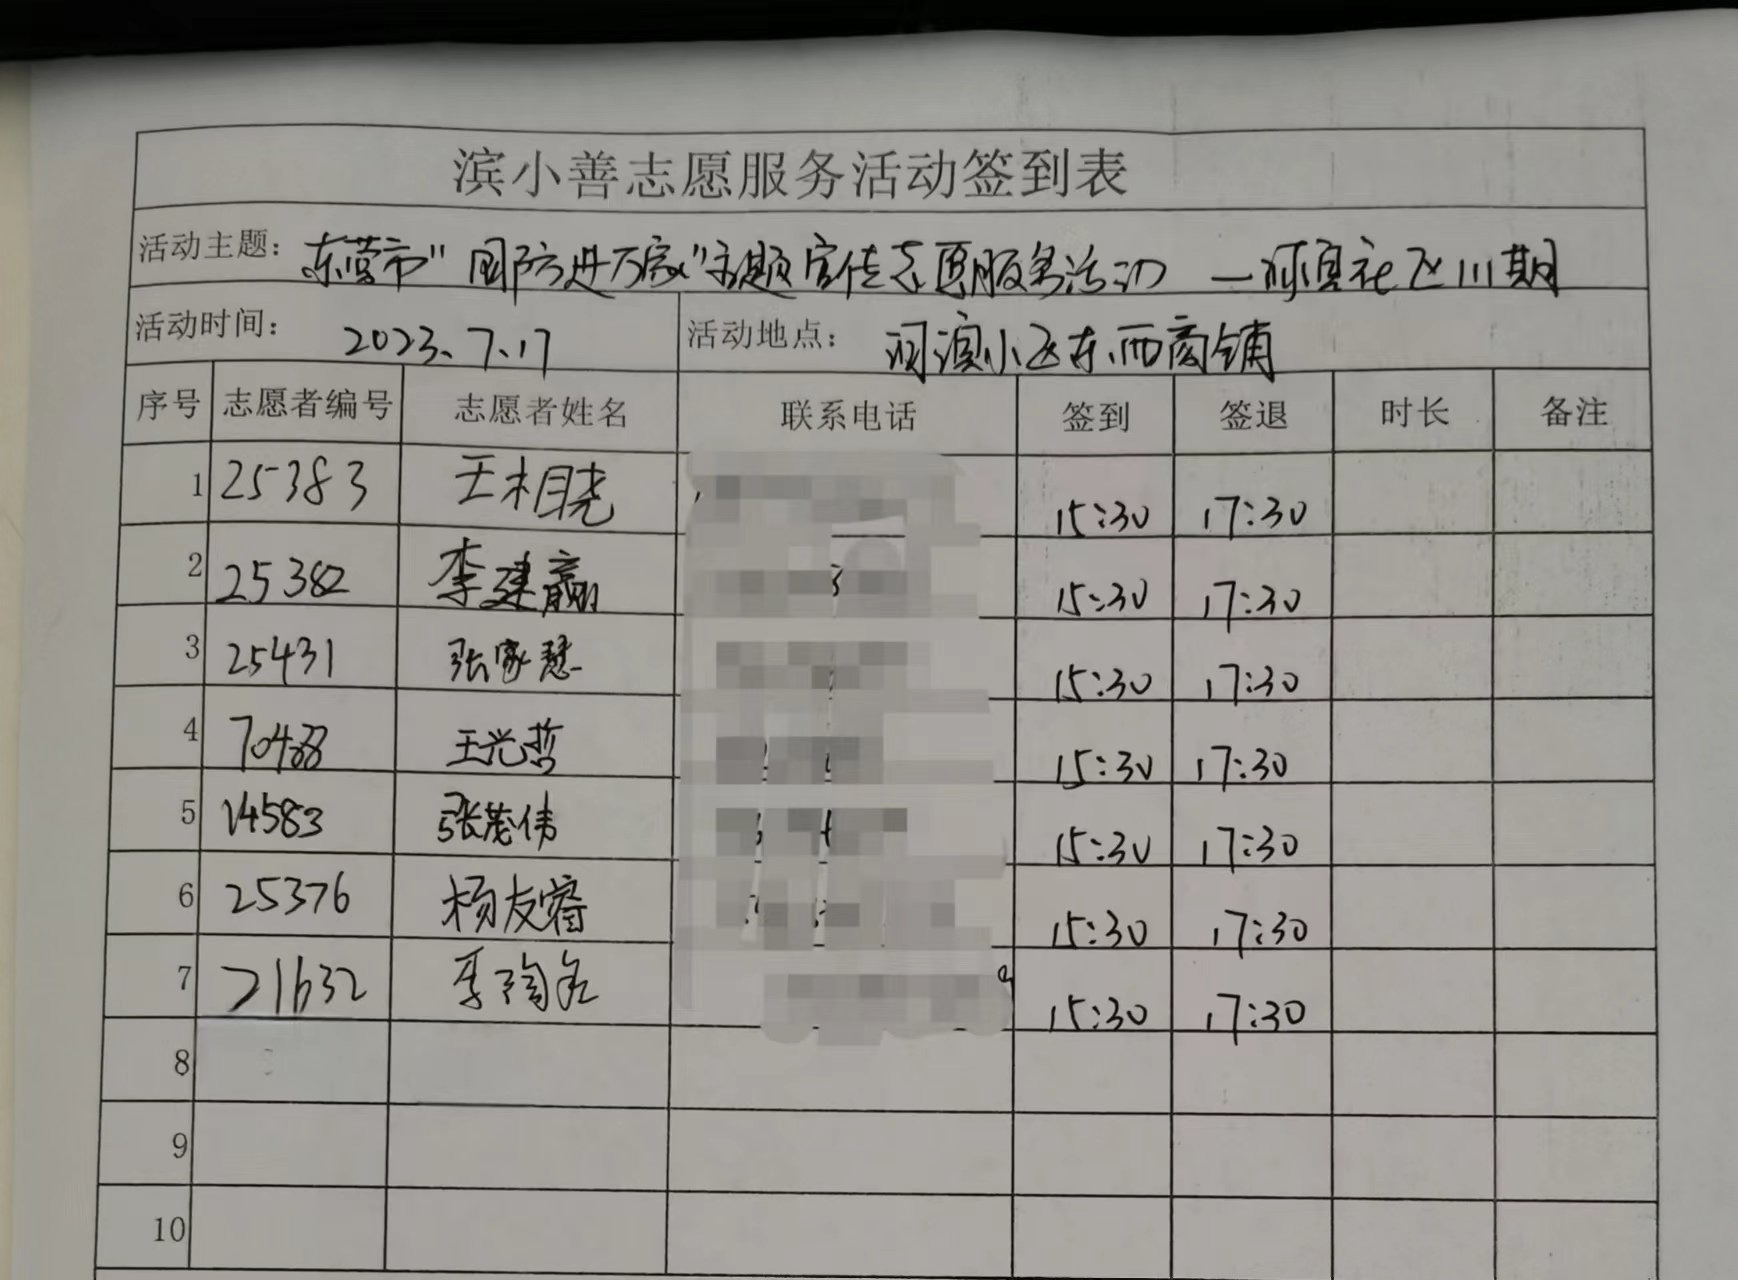 滨小善志愿服务活动签到表
活动主题: 东营市"国防进万家"主题宣传志愿服务活动 —社区111期
活动时间: 2023.7.17 活动地点: 河滨小区东、西商铺
序号 志愿者编号 志愿者姓名 联系电话 签到 签退 时长 备注
1 25383 王相晓 15:30 17:30
2 25382 李建赢 15:30 17:30
3 25431 张家慧 15:30 17:30
4 70488 王光哲 15:30 17:30
5 14583 张茂伟 15:30 17:30
6 25376 杨友睿 15:30 17:30
7 21632 15:30 17:30
8
9
10